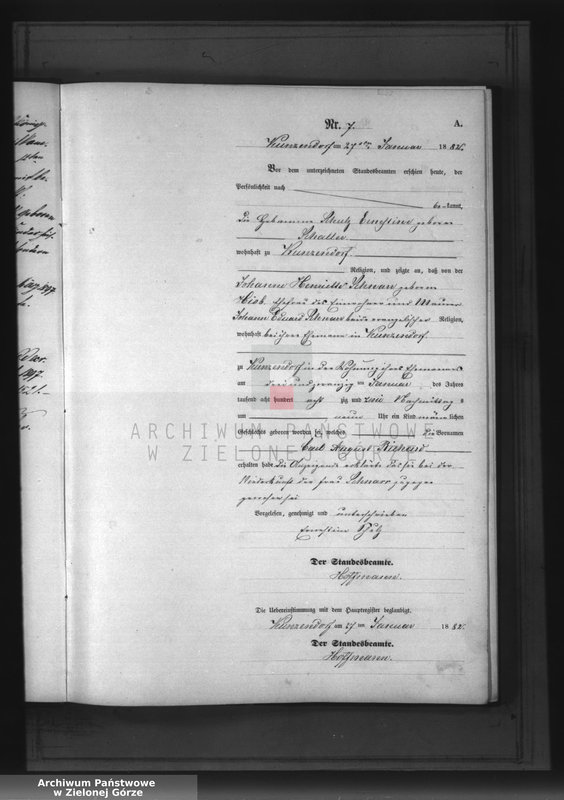 Nr. 7. A.
Kunzendorf am 27ten Januar 1882.
Vor dem unterzeichneten Standesbeamten erschien heute, der
Persönlichkeit nach
be kannt,
die Hebamme Schulz Ernestine geborene
wohnhaft zu Kunzendorf
Religion, und zeigte an, daß von der
Johanne Henriette Schnarr geborene
Hiob, Ehefrau des
Johann Eduard Schnarr beide evangelischer Religion,
wohnhaft bei ihrem Ehemann in Kunzendorf
zu Kunzendorf in der Wohnung ihres Ehemannes
am drei und zwanzig ten Januar des Jahres
tausend acht hundert acht zig und zwei Nachmittag s
um neun Uhr ein Kind männ lichen
Geschlechts geboren worden sei, welches die Vornamen
Carl August Richard
erhalten habe. Die Anzeigende erklärte daß sie bei der
Niederkunft der Frau Schnarr zugegen
gewesen sei
Vorgelesen, genehmigt und unterschrieben
Ernestine
Der Standesbeamte.
Hoffmann.
Die Uebereinstimmung mit dem Hauptregister beglaubigt.
Kunzendorf am 27 ten Januar 1882.
Der Standesbeamte.
Hoffmann.
ARCHIWUM PAŃSTWOWE
W ZIELONEJ GÓRZE
Archiwum Państwowe
w Zielonej Górze